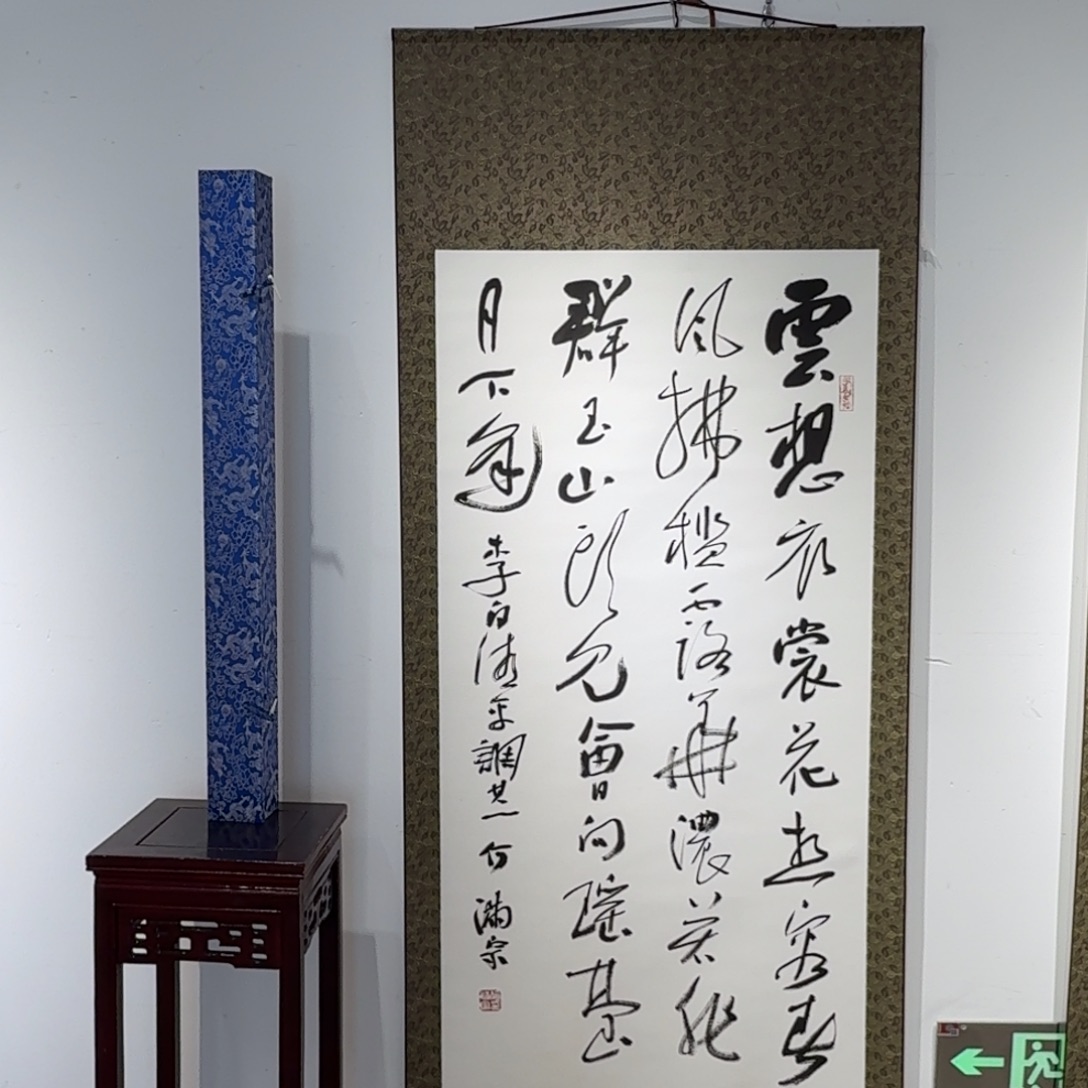 雲想衣裳花想容春
風拂檻露華濃若非
群玉山頭見會向瑤臺
月下逢 李白清平調其一 何滿宗